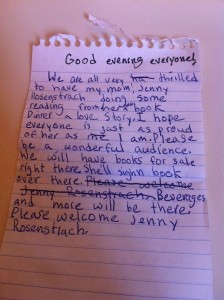 Good evening everyone!
We are all very ha thrilled
to have my mom, Jenny
Rosenstrach doing some
reading from her book
Dinner a love Story. I hope
everyone is just as proud
of her as me I am. Please
be a wonderful audience.
We will have books for sale
right there. Shell sighn book
over there. Please welcome
Jenny Rosenstrach. Beverages
and more will be there.
Please welcome Jenny
Rosenstrach.